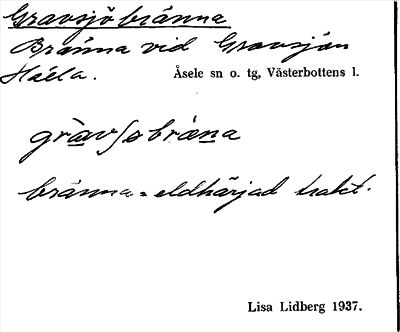 Gravsjöbränna
Bränna vid Gravsjön
Åsele sn o. tg, Västerbottens l.
gràvʃøbrä̀na
bränna = eldhärjad trakt.
Lisa Lidberg 1937.